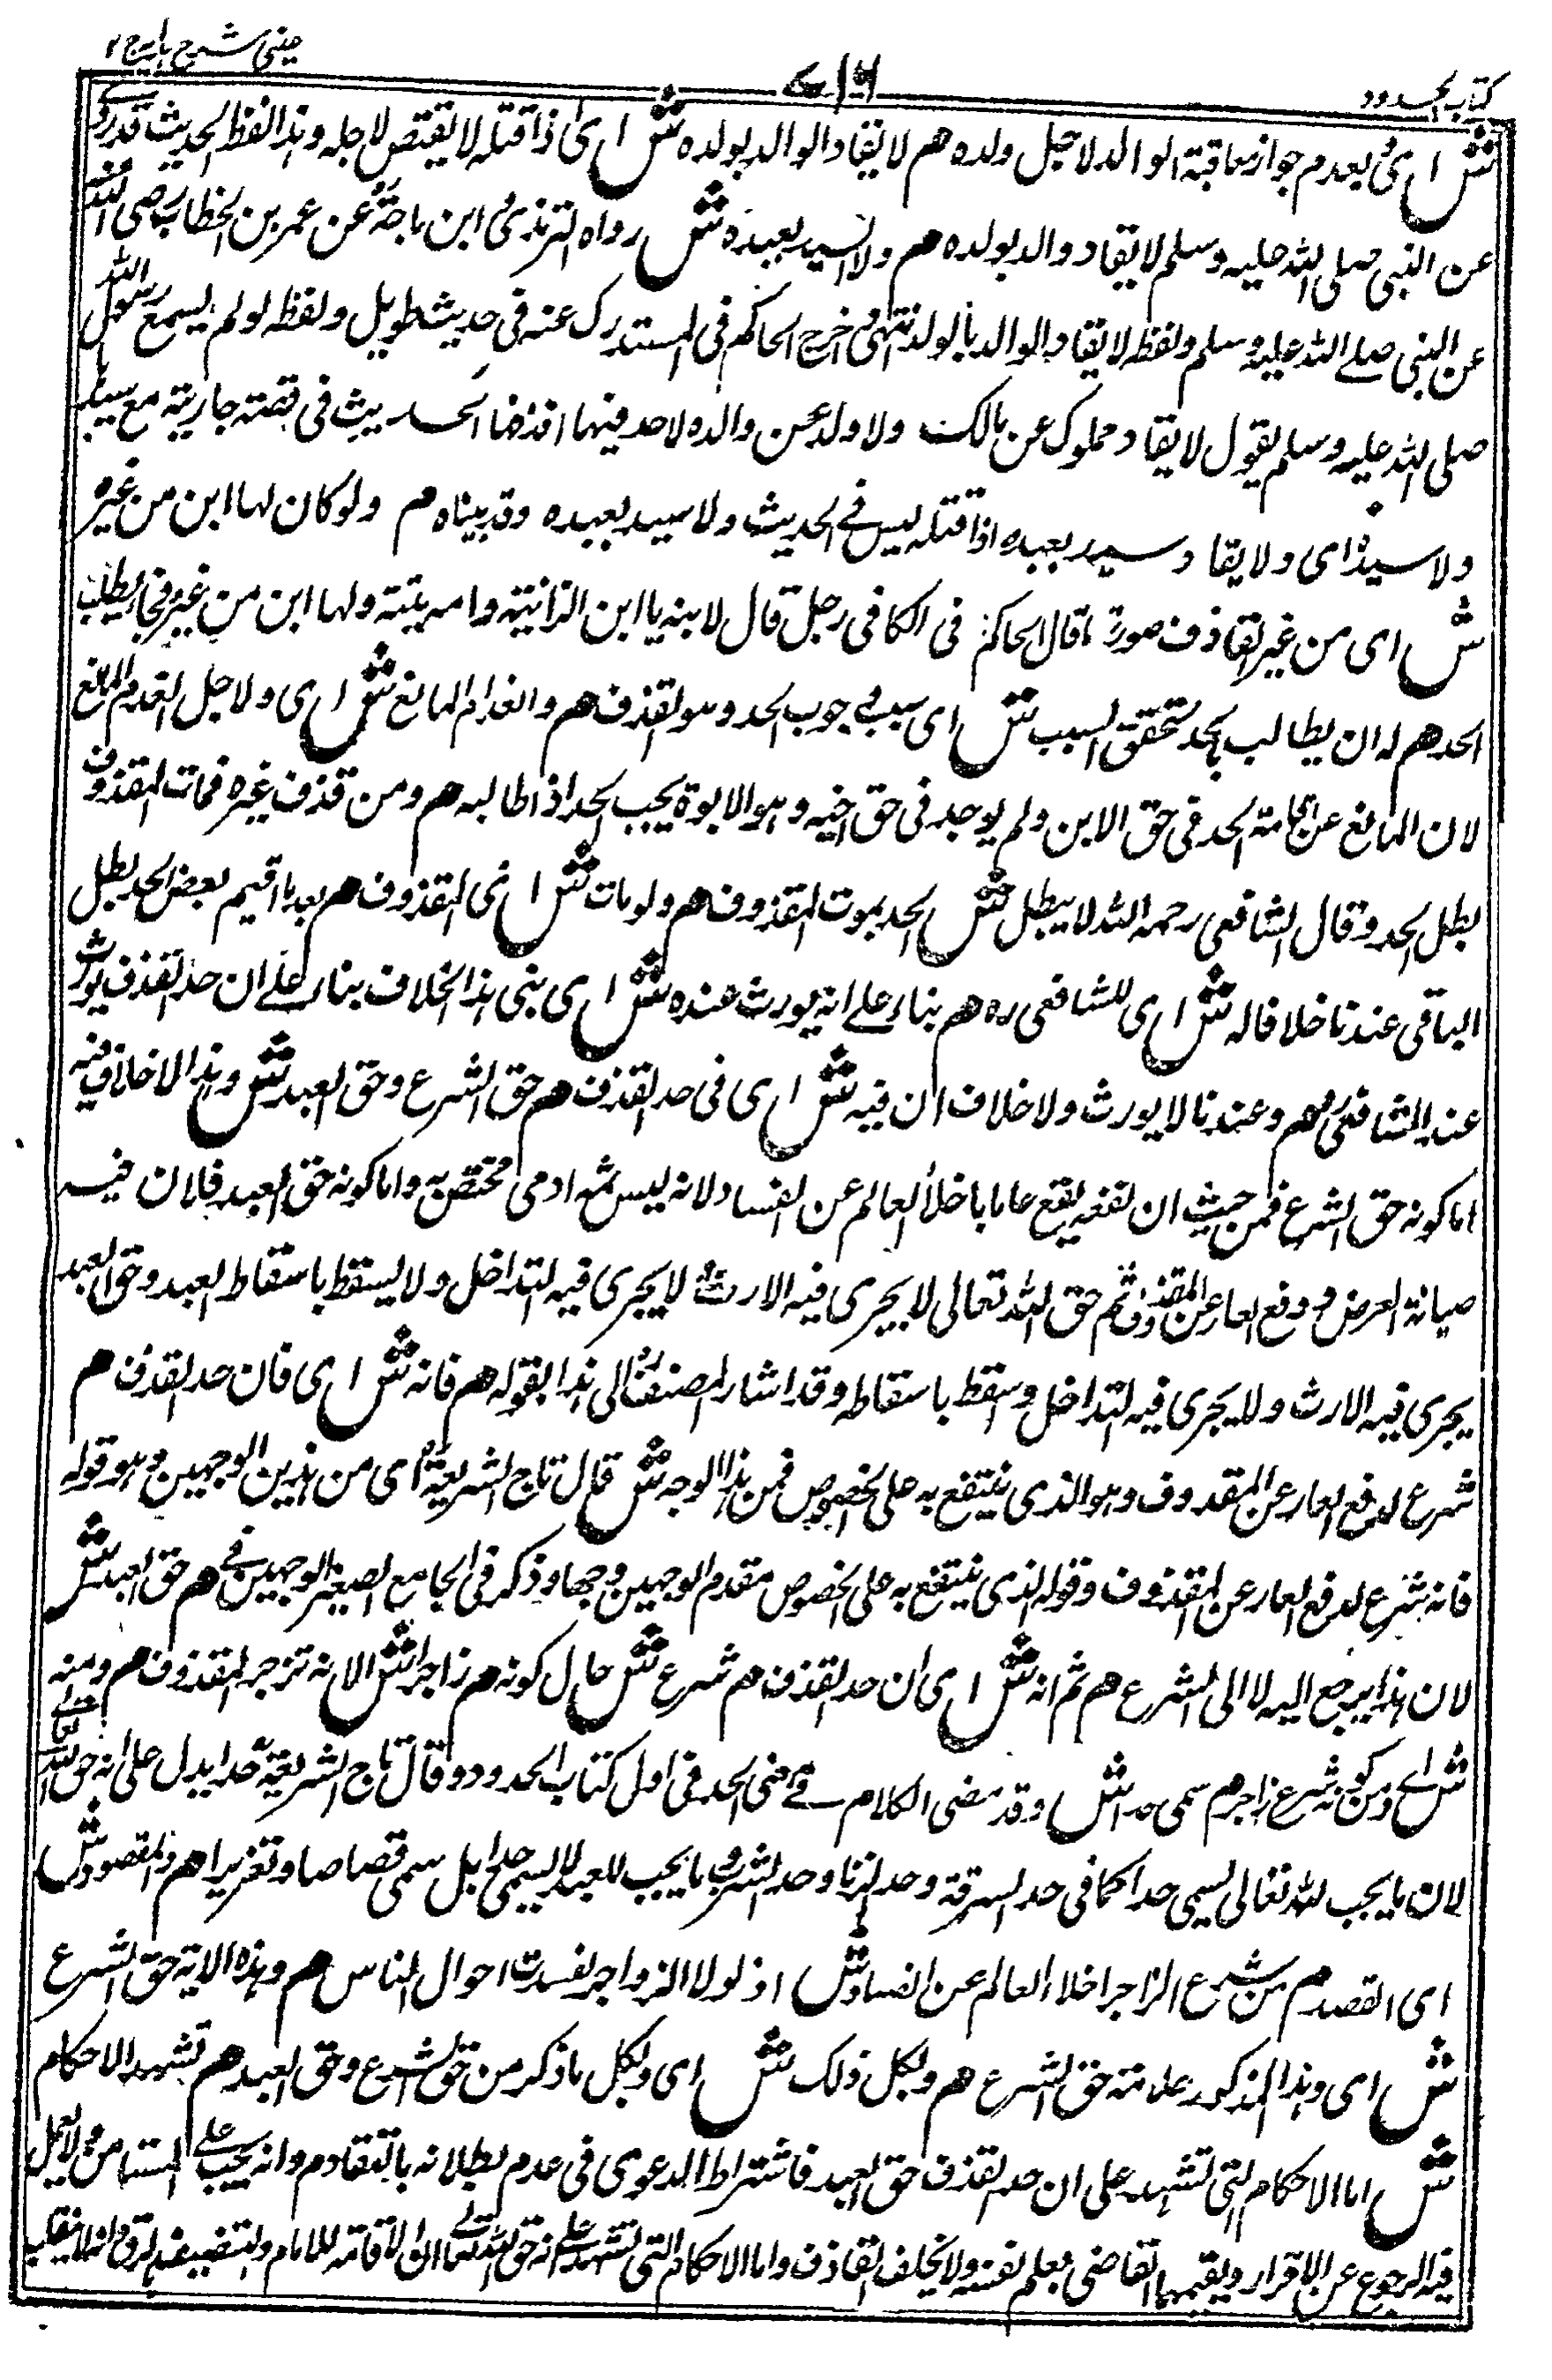 عینی شرح ہدایہ ج ۲
كتاب الحدود
ش ای بعدم جواز معاقبة الوالد لاجل ولده هم لا يقاد الوالد بولده ش ای اذا قتله لا يقتص لاجله وهذا لفظ الحديث قد روى
عن النبي صلى الله عليه وسلم لا يقاد والد بولده هم ولا السيد بعبده ش رواه الترمذی وابن ماجة عن عمر بن الخطاب رضى الله عنه
عن النبى صلے الله عليه وسلم ولفظه لا يقاد الوالد بالولد انتهى واخرج الحاكم فى المستدرك عنه فى حديث طويل ولفظه لو لم يسمع رسول الله
صلى الله عليه وسلم يقول لا يقاد مملوك عن مالك ولا ولد عن والده لاحد فيها اخذ هذا الحديث فى قصة جارية مع سيدها
ولا سيد ای ولا يقاد سيد بعبده اذا قتله ليس فے الحديث ولا سيد بعبده وقد بيناه م ولو كان لها ابن من غيره
ش ای من غير القاذف صورة ما قال الحاكم فى الكافى رجل قال لابنه يا ابن الزانية وامه ميتة ولها ابن من غيره فجا يطلب
الحد هم له ان يطالب بالحد لتحقق السبب ش ای سبب وجوب الحد وهو القذف هم وانعدام المانع ش ای ولاجل انعدم المانع
لان المانع عن اقامة الحد فى حق الابن ولم يوجد فى حق اخيه وهو الابوة يجب الحد اذا طالبه هم ومن قذف غيره فمات المقذوف
بطل الحد وقال الشافعى رحمه الله لا يبطل ش الحد بموت المقذوف هم ولو مات ش ای المقذوف هم بعد ما اقيم بعض الحد بطل
الباقى عندنا خلافا له ش ای للشافعى ره هم بناء على انه يورث عنده ش ای بنى هذا الخلاف بناء علے ان حد القذف يورث
عند الشافعى هم وعندنا لا يورث ولا خلاف ان فيه ش ای فى حد القذف هم حق الشرع وحق العبد ش وهذا لا خلاف فيه
اما كونه حق الشرع فمن حيث ان نفعه يقع عاما باخلاء العالم عن الفساد لانه ليس ثمه ادمى مختص به واما كونه حق العبد فلان فيه
صيانة العرض ودفع العار عن المقذوف ثم حق الله تعالى لا يجرى فيه الارث لا يجرى فيه التداخل ولا يسقط باسقاط العبد وحق العبد
يجرى فيه الارث ولا يجرى فيه التداخل وسقط باسقاطه وقد اشار المصنف الى هذا بقوله هم فانه ش ای فان حد القذف هم
شرع لدفع العار عن المقذوف وهو الذى ينتفع به على الخصوص فمن هذا الوجه ش قال تاج الشريعة ای من هذين الوجهين وهو قوله
فانه شرع لدفع العار عن المقذوف وقوله الذى ينتفع به على الخصوص مقدم الوجهين وجها وذكر فى الجامع الصغير الوجهين فے هم حق العبد ش
لان هذا يرجع اليه لا الى الشرع هم ثم انه ش ای ان حد القذف هم شرع ش حال كونه هم زاجرا ش لانه تزجر المقذوف هم ومنه
ش اے ومن كونه شرع زاجرا هم سمى حدا ش وقد مضى الكلام فے معنى الحد فى اول كتاب الحدود وقال تاج الشريعة حدا يدل على انه حق الله تعالے
لان ما يجب لله تعالى يسمى حدا كما فى حد السرقة وحد الزنا وحد الشرب وما يجب للعبد لا يسمى حدا بل سمى قصاصا وتعزيرا هم والمقصود ش
ای القصد هم من شرع الزاجر اخلاء العالم عن الفساد ش اذ لولا الزواجر لفسدت احوال الناس هم وهذه الاية حق الشرع
ش ای وهذا المذكور علامة حق الشرع هم وبكل ذلك ش ای وبكل ما ذكر من حق الشرع وحق العبد هم تشهد الاحكام
ش اما الاحكام التى تشهد على ان حد القذف حق العبد فاشتراط الدعوى فى عدم بطلانه بالتقادم وانه يجب علے المستامن ولا يعمل
فيه الرجوع عن الاقرار ويقيمها القاضى بعلم نفسه ولا يحلف القاذف واما الاحكام التى تشهد علے انه حق الله تعالے ان الاقامة للامام ولتنصيفه بالرق وانه لا ينقلب